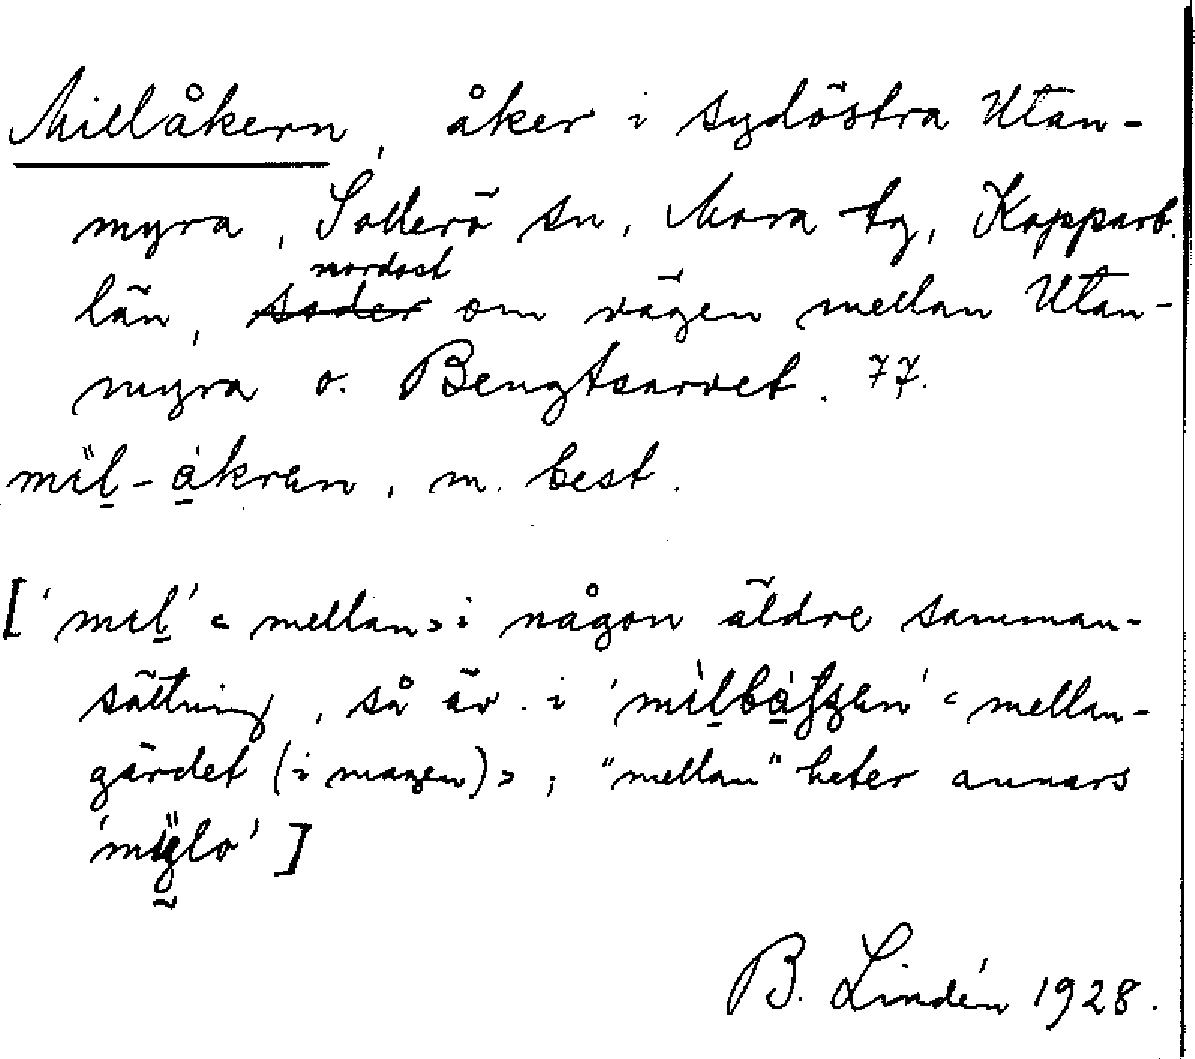 Millåkern, åker i sydöstra Utan-
myra, Sollerö sn, Mora tg, Kopparb.
län, ~~söder~~ nordost om vägen mellan Utan-
myra o. Bengtsarvet. 77.
mi̋l̠-å̠kran, m. best.
['mil̠' «mellan» i någon äldre samman-
sättning, så äv. i 'mìl̠bå̠fʒen' «mellan-
gärdet (i magen)»; "mellan" heter annars
]
B. Lindén 1928.